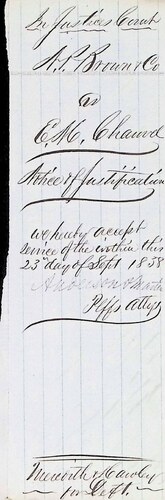 In Justices Court
A. P. Brown & Co
vs
E. M. Chaurd
Notice of Justification
we hereby accept
service of the within this
23d day of Sept 1858
Anderson & North
Plffs attys
Meredith & Hawley
for Deft.